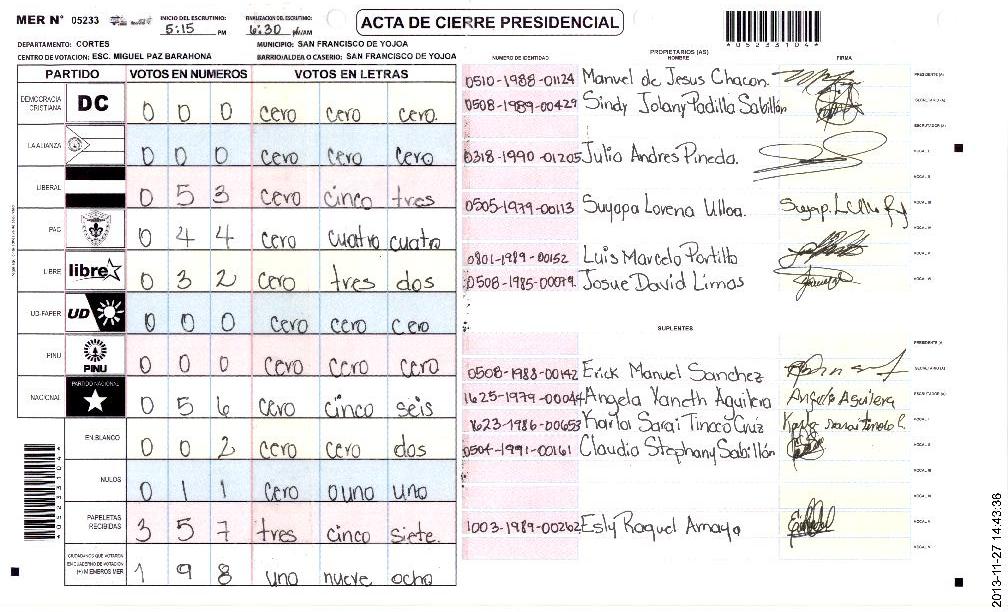 MER N° 05233
INICIO DEL ESCRUTINIO: 5:15 PM
FINALIZACION DEL ESCRUTINIO: 6:30 PM/AM
ACTA DE CIERRE PRESIDENCIAL
*05233104*
DEPARTAMENTO: CORTES
MUNICIPIO: SAN FRANCISCO DE YOJOA
CENTRO DE VOTACION: ESC. MIGUEL PAZ BARAHONA
BARRIO/ALDEA O CASERIO: SAN FRANCISCO DE YOJOA
PARTIDO VOTOS EN NUMEROS VOTOS EN LETRAS
DEMOCRACIA CRISTIANA DC 0 0 0 cero cero cero.
LA ALIANZA 0 0 0 cero cero cero
LIBERAL 0 5 3 cero cinco tres
PAC 0 4 4 cero cuatro cuatro
LIBRE libre 0 3 2 cero tres dos
UD-FAPER UD 0 0 0 cero cero cero
PINU PINU 0 0 0 cero cero cero
NACIONAL PARTIDO NACIONAL 0 5 6 cero cinco seis
EN BLANCO 0 0 2 cero cero dos
NULOS 0 1 1 cero uno uno
PAPELETAS RECIBIDAS 3 5 7 tres cinco siete.
CIUDADANOS QUE VOTARON EN CUADERNO DE VOTACION (+) MIEMBROS MER 1 9 8 uno nueve ocho
PROPIETARIOS (AS)
NUMERO DE IDENTIDAD NOMBRE FIRMA
0510-1988-01124 Manuel de Jesus Chacon. PRESIDENTE(A)
0508-1989-00429 Sindy Jolany Padilla Sabillón SECRETARIO(A)
ESCRUTADOR(A)
0318-1990-01205 Julio Andres Pineda. VOCAL I
VOCAL II
0505-1979-00113 Suyapa Lorena Ulloa. VOCAL III
0801-1989-00152 Luis Marcelo Portillo
0508-1985-00079. Josue David Limas
SUPLENTES
PRESIDENTE(A)
0508-1988-00142 Erick Manuel Sanchez SECRETARIO(A)
1625-1979-00044 Angela Yaneth Aguilera Angela Aguilera ESCRUTADOR(A)
1623-1986-00653 Karla Sarai Tinoco Cruz VOCAL I
0504-1991-00161 Claudia Stephany Sabillón VOCAL II
VOCAL III
1003-1989-00262 Esly Raquel Amaya VOCAL V
2013-11-27 14:43:36